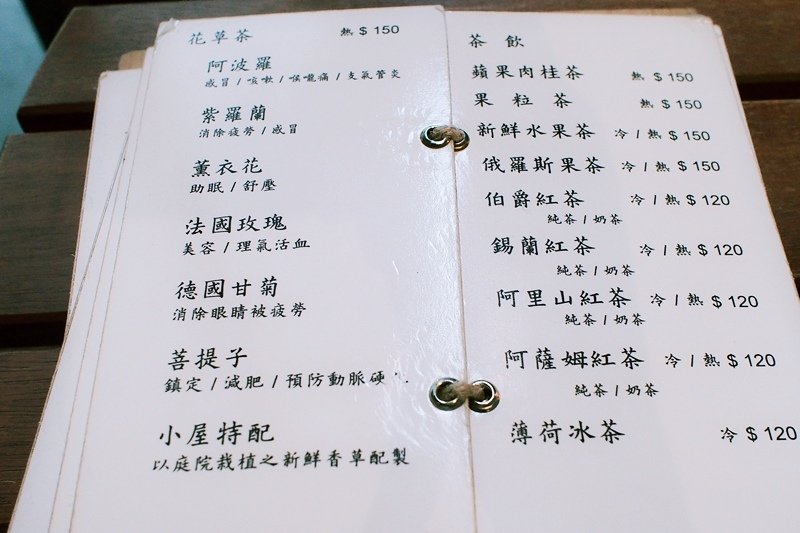 花草茶 熱 $ 150
阿波羅
感冒 / 咳嗽 / 喉嚨痛 / 支氣管炎
紫羅蘭
消除疲勞 / 感冒
薰衣花
助眠 / 舒壓
法國玫瑰
美容 / 理氣活血
德國甘菊
消除眼睛被疲勞
菩提子
鎮定 / 減肥 / 預防動脈硬
小屋特配
以庭院栽植之新鮮香草配製
茶 飲
蘋果肉桂茶 熱 $ 150
果 粒 茶 熱 $ 150
新鮮水果茶 冷 / 熱 $ 150
俄羅斯果茶 冷 / 熱 $ 150
伯爵紅茶 冷 / 熱 $ 120
純茶 / 奶茶
錫蘭紅茶 冷 / 熱 $ 120
純茶 / 奶茶
阿里山紅茶 冷 / 熱 $ 120
純茶 / 奶茶
阿薩姆紅茶 冷 / 熱 $ 120
純茶 / 奶茶
薄荷冰茶 冷 $ 120